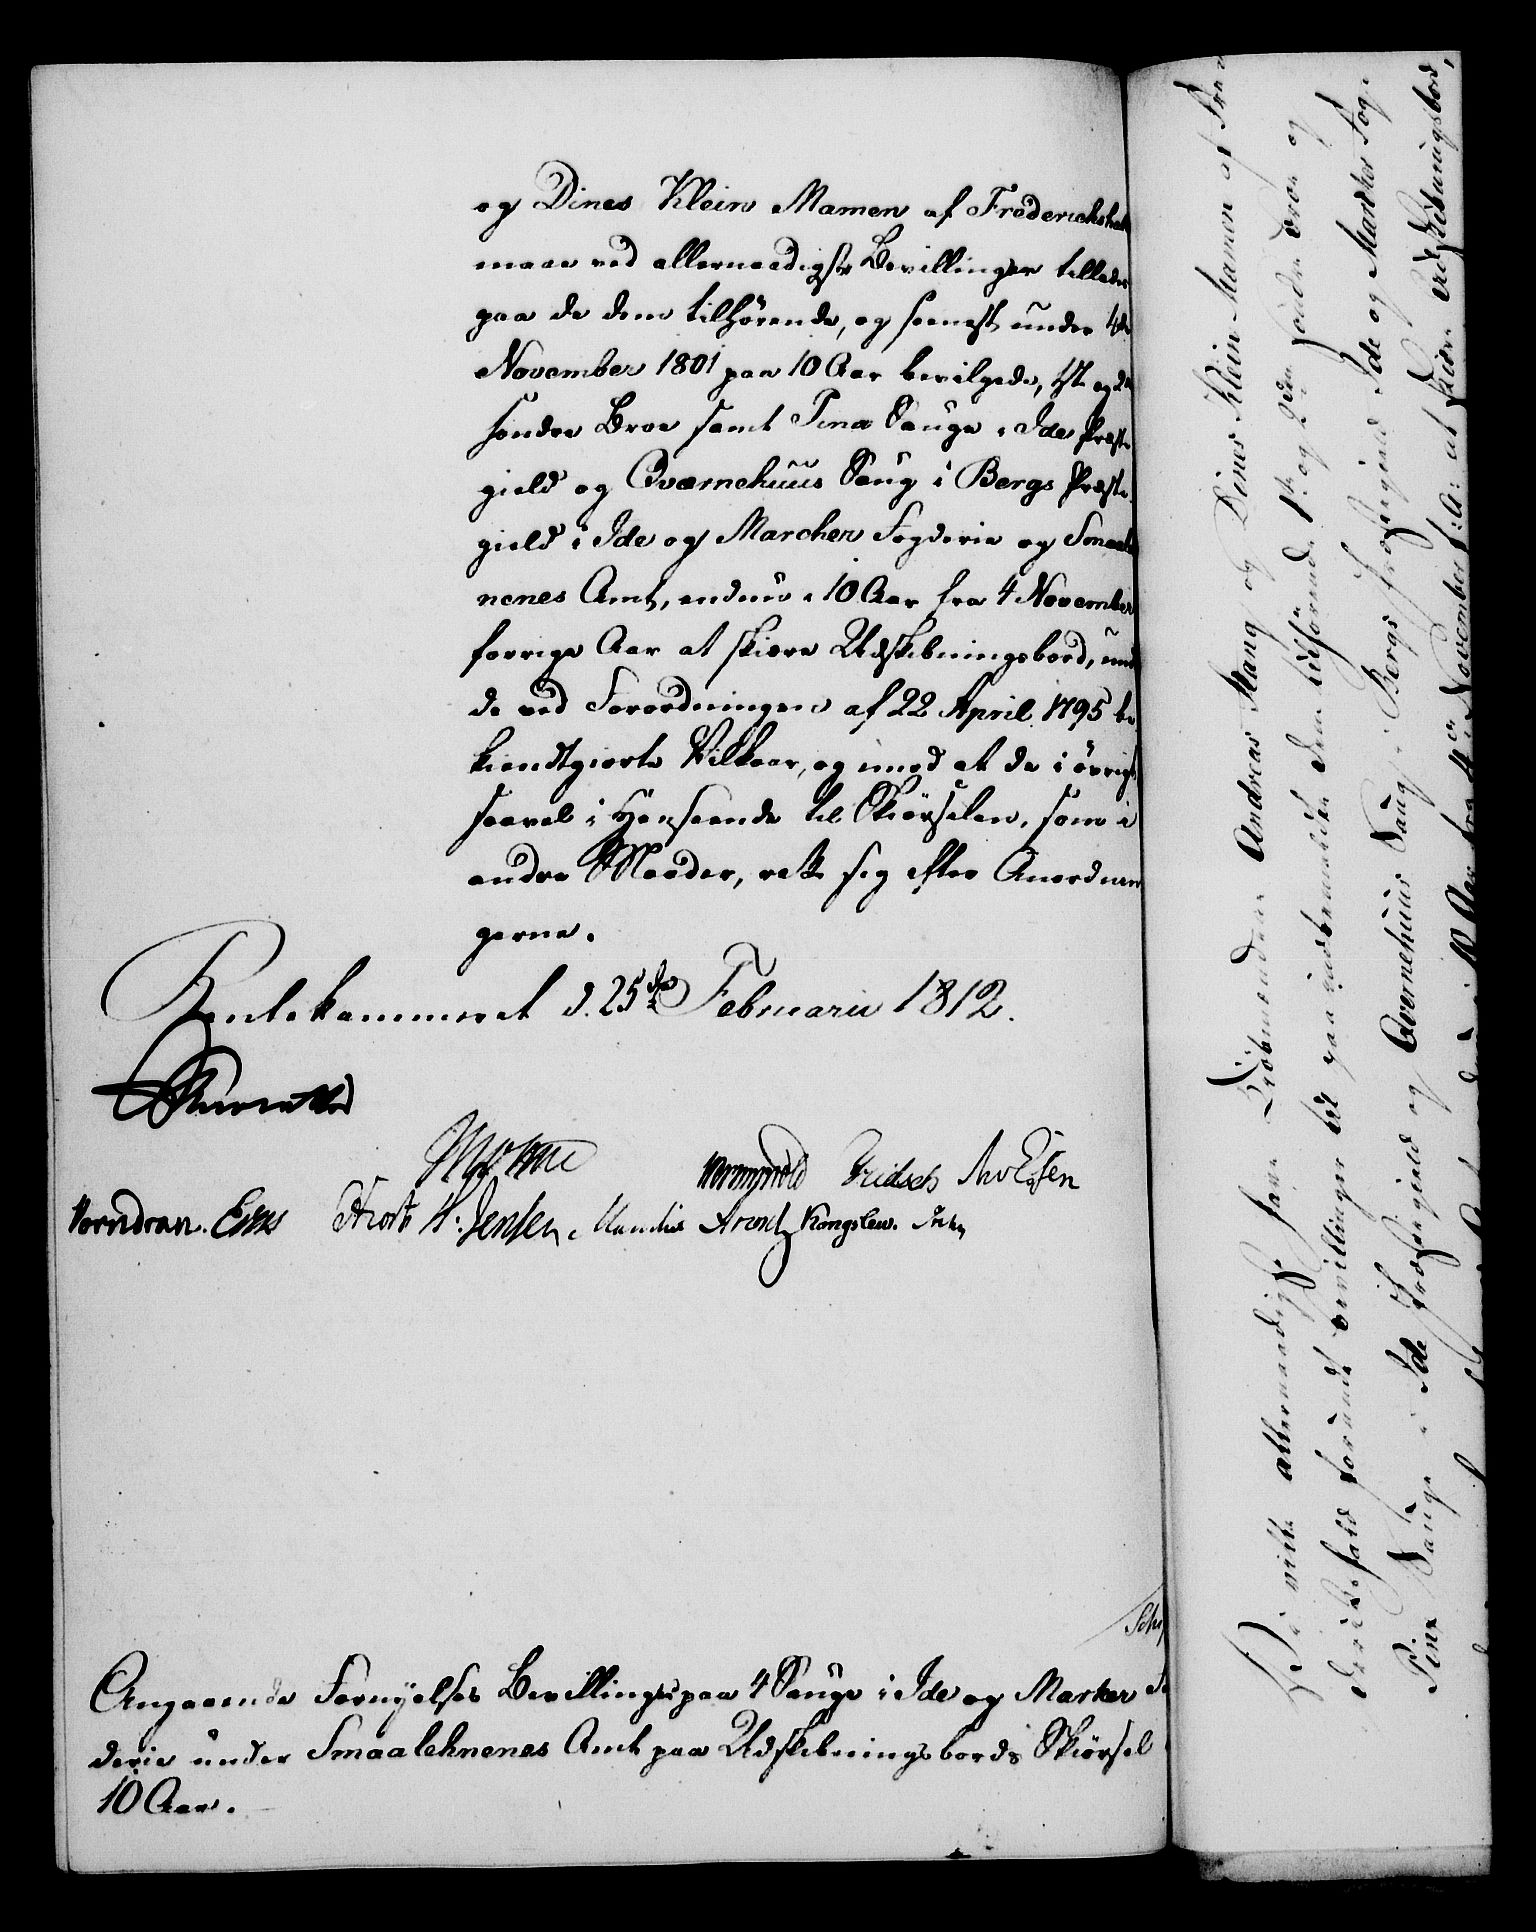 og Dines Klein Mamen af Frederichshal
maae ved allernaadigste Bevillinger tillades
paa de dem tilhørende, og seenest under 4de
November 1801 paa 10 Aar bevilgede, 1ste og 2de
søndre Broe samt Tina Sauge i Ide Præste
gield og Qværnehuus Saug i Bergs Præste
gield i Ide og Marcher Fogderie og Smaaleh
nenes Amt, endnu i 10 Aar fra 4 November
forrige Aar at skiære Udskibningsbord, un
de ved Forordningen af 22 April 1795 be
kiendtgiorte Vilkaar, og imod at de i øvrigt
saavel i Henseende til Skiørselen, som i
andre Maader, rette sig efter Anordnin
gerne.
Rentekammeret d. 25de Februarii 1812.
Wormskiold Fridsch
Vorndran. Hiort H: Jensen. Arentz Kongslew.
Angaaende Fornyelses Bevillinger paa 4 Sauge i Ide og Marker Fo
derie under Smaalehnenes Amt paa Udskibningsbords Skiørsel
10 Aar.
Vi ville allernaadigst have Kiøbmændene Andreas Stang og Dines Klein Mamen af Fre
derikshald forundt Bevillinger til paa indbemeldte dem tilhørende 1ste og 2den søndre Broe og
Tina Sauge i Ide Præstegield og Qvernehuus Saug i Bergs Præstegield Ide og Markers Fog
i 10 Aar fra 4de November f: A: at skiære Udskibningsbord,